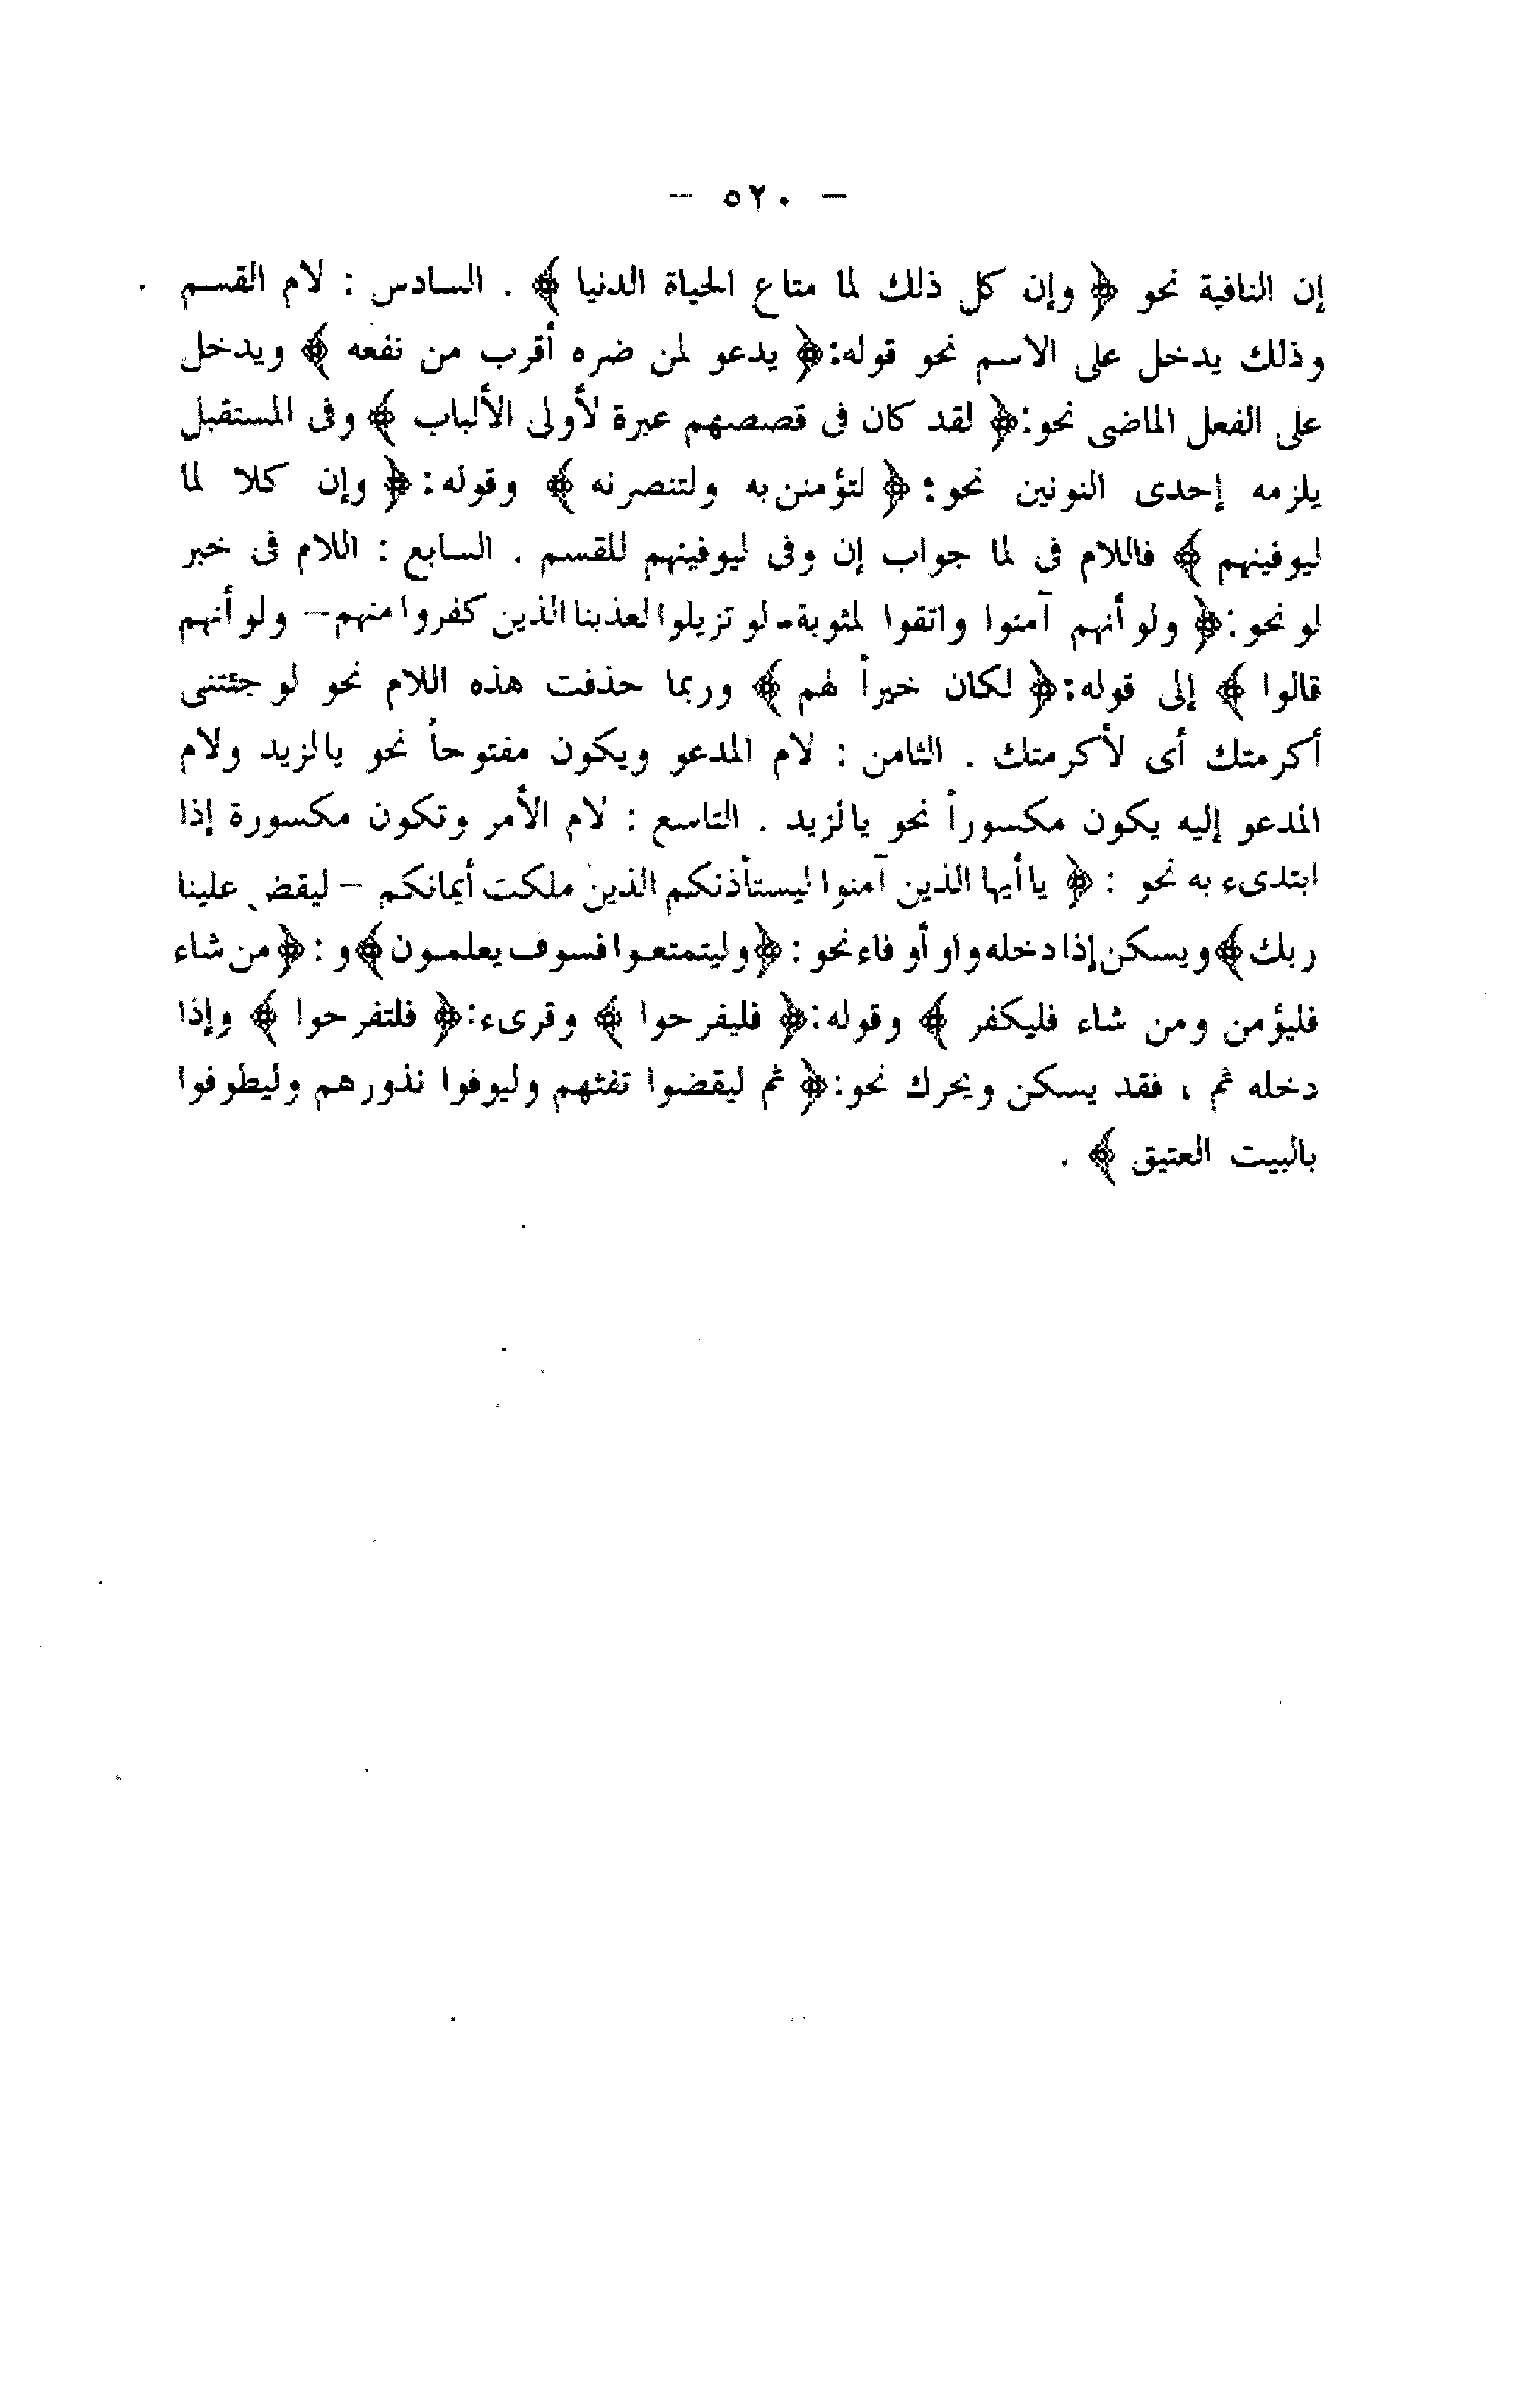 — ٥٢٠ —
إن النافية نحو ﴿ وإن كل ذلك لما متاع الحياة الدنيا ﴾ . السادس : لام القسم
وذلك يدخل على الاسم نحو قوله:﴿ يدعو لمن ضره أقرب من نفعه ﴾ ويدخل
على الفعل الماضى نحو:﴿ لقد كان فى قصصهم عبرة لأولى الألباب ﴾ وفى المستقبل
يلزمه إحدى النونين نحو:﴿ لتؤمنن به ولتنصرنه ﴾ وقوله:﴿ وإن كلا لما
ليوفينهم ﴾ فاللام فى لما جواب إن وفى ليوفينهم للقسم . السابع : اللام فى خبر
لو نحو:﴿ ولو أنهم آمنوا واتقوا لمثوبة - لو تزيلوا لعذبنا الذين كفروا منهم - ولو أنهم
قالوا ﴾ إلى قوله:﴿ لكان خيراً لهم ﴾ وربما حذفت هذه اللام نحو لو جئتنى
أكرمتك أى لأكرمتك . الثامن : لام المدعو ويكون مفتوحاً نحو يالزيد ولام
المدعو إليه يكون مكسوراً نحو يالزيد . التاسع : لام الأمر وتكون مكسورة إذا
ابتدىء به نحو : ﴿ يا أيها الذين آمنوا ليستأذنكم الذين ملكت أيمانكم - ليقضِ علينا
ربك﴾ ويسكن إذا دخله واو أو فاء نحو : ﴿وليتمتعوا فسوف يعلمون﴾ و : ﴿من شاء
فليؤمن ومن شاء فليكفر ﴾ وقوله:﴿ فليفرحوا ﴾ وقرىء:﴿ فلتفرحوا ﴾ وإذا
دخله ثم ، فقد يسكن ويحرك نحو:﴿ ثم ليقضوا تفثهم وليوفوا نذورهم وليطوفوا
بالبيت العتيق ﴾ .